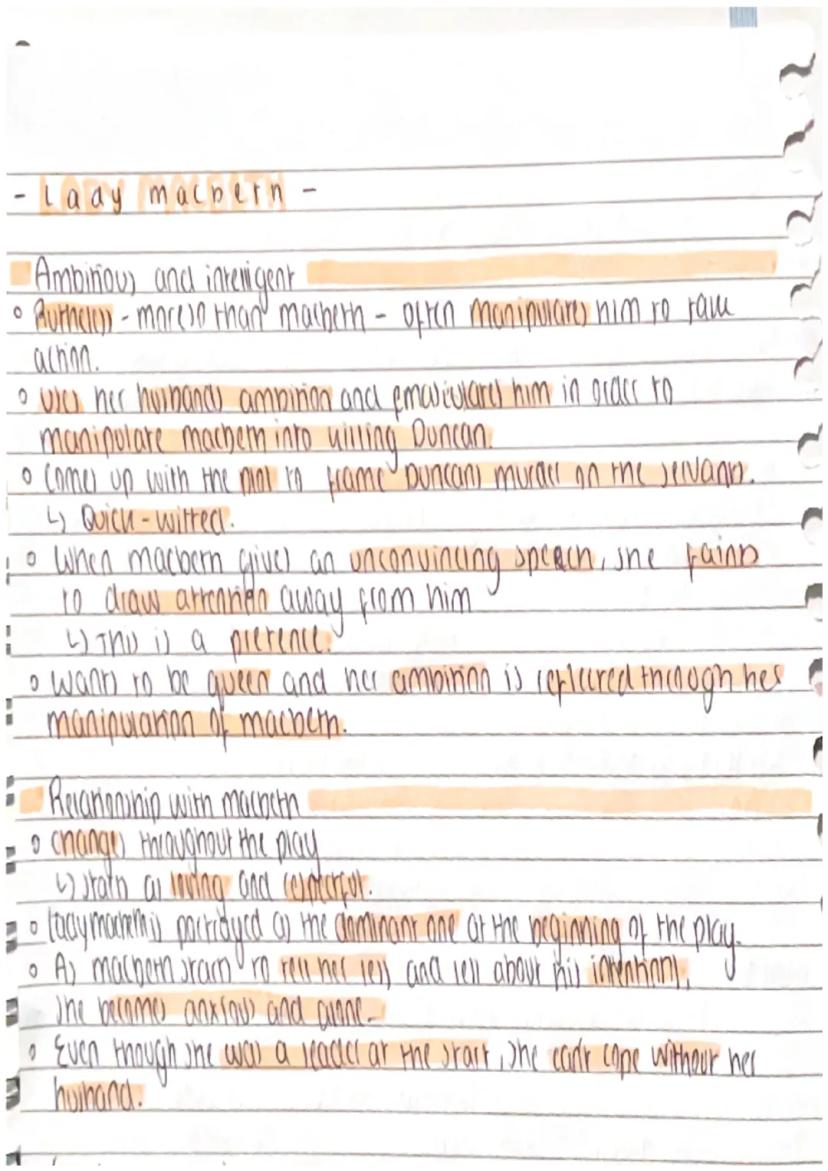 - Lady Macbeth -
Ambitious and intelligent
Ruthless - more so than Macbeth - often manipulates him to take
action.
Uses her husbands ambition and emasculates him in order to
manipulate Macbeth into killing Duncan.
Comes up with the plot to frame Duncans murder on the servants.
↳ Quick-witted.
When Macbeth gives an unconvincing speech, she faints
to draw attention away from him
↳ This is a pretence.
Wants to be queen and her ambition is reflected through her
manipulation of Macbeth.
Relationship with Macbeth
Changes throughout the play
↳ starts as loving and respectful.
Lady Macbeth is portrayed as the dominant one at the beginning of the play.
As Macbeth starts to tell her less and less about his intentions,
she becomes anxious and alone.
Even though she was a leader at the start, she can't cope without her
husband.